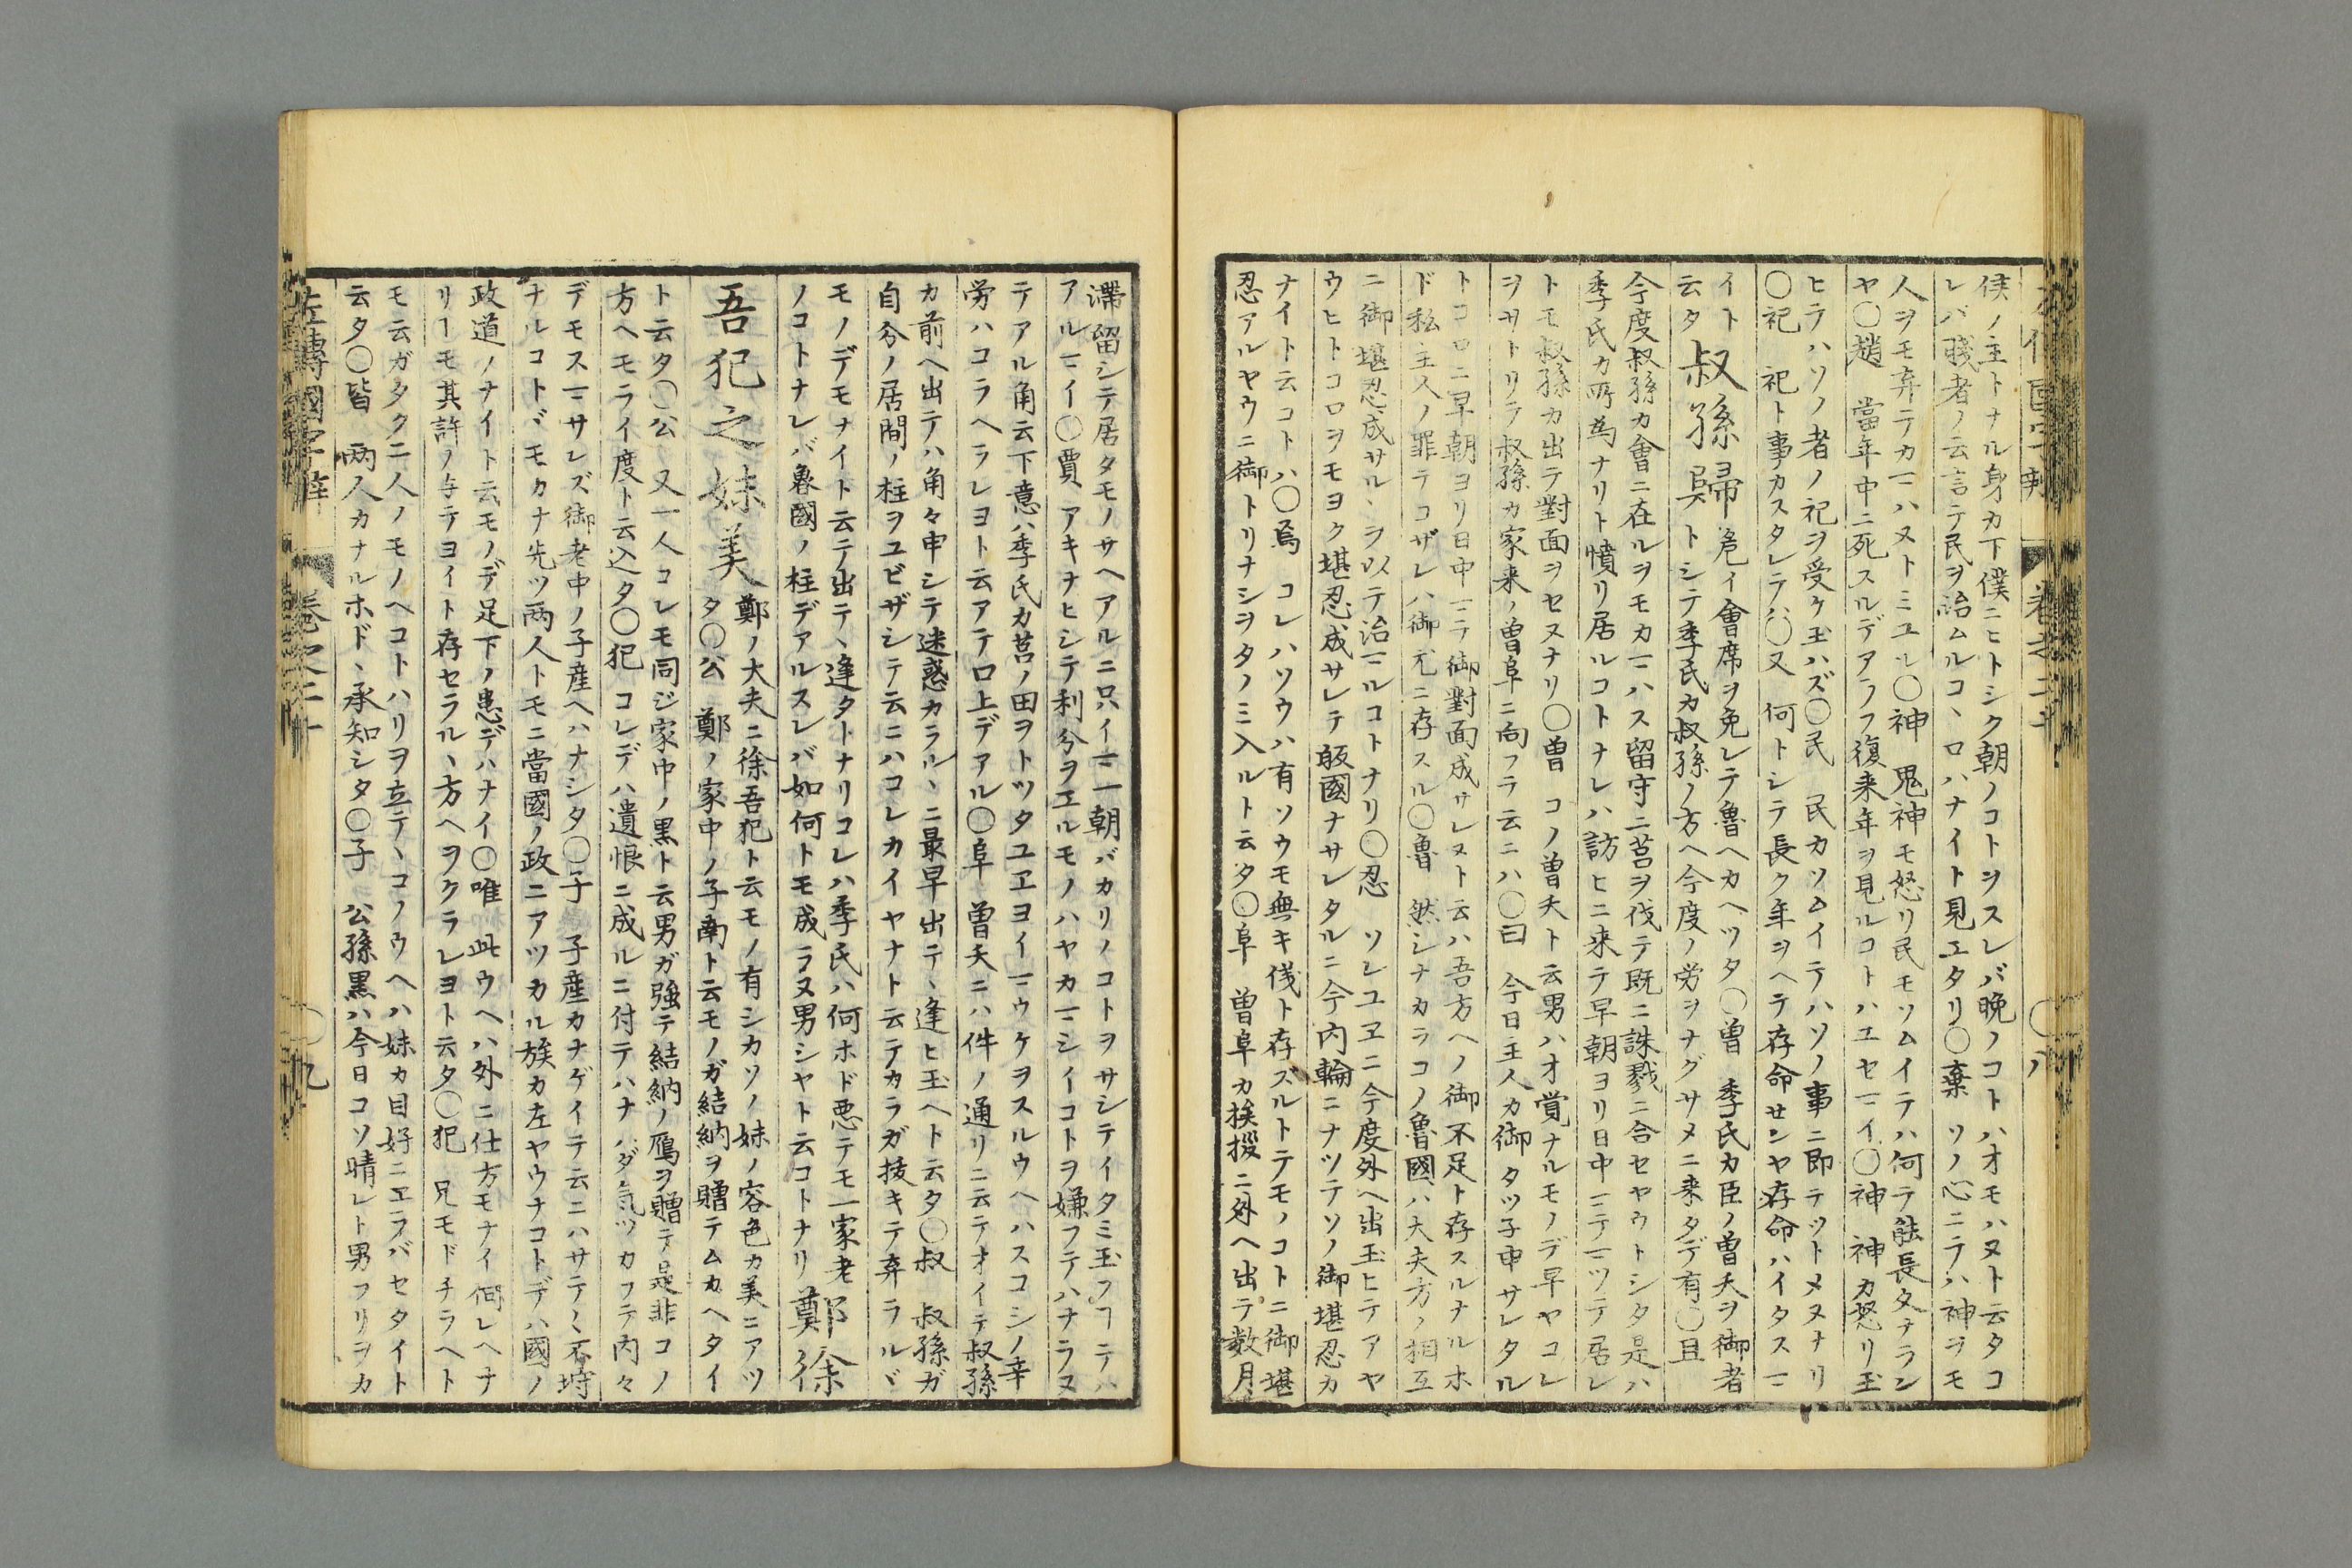 侯ノ主トナル身カ下僕ニヒトシク朝ノコトヲスレバ晩ノコトハオモハヌト云タコ
レバ賤者ノ云言テ民ヲ治ムルコヽロハナイト見エタリ○棄 ソノ心ニテハ神ヲモ
人ヲモ弃テカマハヌトミユル○神 鬼神モ怒リ民モソムイテハ何テ能長タナラン
ヤ○趙 當年中ニ死スルデアラフ復来年ヲ見ルコトハエセマイ○神 神カ怒リ玉
ヒテハソノ者ノ祀ヲ受ケ玉ハズ○民 民カソムイテハソノ事ニ即テツトメヌナリ
○祀 祀ト事カスタレテハ○又 何トシテ長ク年ヲヘテ存命セシヤ存命ハイタスマ
イト 叔孫歸 危イ會席ヲ免レテ魯ヘカヘツタ○曽 季氏カ臣ノ曽夭ヲ御者
云タ トシテ季氏カ叔孫ノ方ヘ今度ノ労ヲナグサメニ来タデ有○且
今度叔孫カ會ニ在ルヲモカマハス留守ニ莒ヲ伐テ既ニ誅戮ニ合セヤウトシタ是ハ
季氏カ所為ナリト憤リ居ルコトナレハ訪ヒニ来テ早朝ヨリ日中マテマツテ居レ
トモ叔孫カ出テ對面ヲセヌナリ○曽 コノ曽夭ト云男ハオ覚ナルモノデ早ヤコレ
ヲサトリテ叔孫カ家来ノ曽阜ニ向フテ云ニハ○曰 今日主人カ御タツ子申サレタル
トコロニ早朝ヨリ日中マテ御對面成サレヌト云ハ吾方ヘノ御不足ト存スルナルホ
ド私主人ノ罪テコザレハ御尤ニ存スル○魯 然シナカラコノ魯國ハ大夫方ノ相互
ニ御堪忍成サルヽヲ以テ治マルコトナリ○忍 ソレユヱニ今度外ヘ出玉ヒテアヤ
ウヒトコロヲモヨク堪忍成サレテ皈國ナサレタルニ今内輪ニナツテソノ御堪忍カ
ナイト云コトハ○焉 コレハソウハ有ソウモ無キ儀ト存ズルトテモノコトニ御堪
忍アルヤウニ御トリナシヲタノミ入ルト云タ○阜 曽阜カ挨拶ニ外ヘ出テ数月
滞留シテ居タモノサヘアルニ只イマ一朝バカリノコトヲサシテイタミ玉フヿテハ
アルマイ○賈 アキナヒシテ利分ヲエルモノハヤカマシイコトヲ嫌フテハナラヌ
テアル角云下意ハ季氏カ莒ノ田ヲトツタユヱヨイマウケヲスルウヘハスコシノ辛
労ハコラヘラレヨト云アテロ上デアル○阜 曽夭ニハ件ノ通リニ云テオイテ叔孫
カ前ヘ出テハ角々申シテ迷惑カラルヽニ最早出テヽ逢ヒ玉ヘト云タ○叔 叔孫ガ
自分ノ居間ノ柱ヲユビザシテ云ニハコレカイヤナト云テカラガ抜キテ弃ラルヽ
モノデモナイト云テ出テヽ逢タトナリコレハ季氏ハ何ホド悪テモ一家老
ノコトナレバ魯國ノ柱デアルスレバ如何トモ成ラヌ男シヤト云コトナリ 鄭徐
吾犯之妹美 鄭ノ大夫ニ徐吾犯ト云モノ有シカソノ妹ノ容色カ美ニアツ
タ○公 鄭ノ家中ノ子南ト云モノガ結納ヲ贈テムカヘタイ
ト云タ○公 又一人コレモ同ジ家中ノ黒ト云男ガ強テ結納ノ鴈ヲ贈テ是非コノ
方ヘモライ度ト云込タ○犯 コレデハ遺恨ニ成ルニ付テハナハダ気ツカフテ内々
デモスマサレズ御老中ノ子産ヘハナシタ○子 子産カナゲイテ云ニハサテ〱不埒
ナルコトバモカナ先ツ両人トモニ當國ノ政ニアツカル族カ左ヤウナコトデハ國ノ
政道ノナイト云モノデ足下ノ患デハナイ○唯 此ウヘハ外ニ仕方モナイ何レヘナ
リヿモ其許ノ与テヨイト存セラルヽ方ヘヲクラレヨト云タ○犯 兄モドチラヘト
モ云ガタク二人ノモノヘコトハリヲ立テヽコノウヘハ妹カ目好ニエラバセタイト
云タ○皆 両人カナルホドヽ承知シタ○子 公孫黒ハ今日コソ晴レト男フリヲカ
左傳國字辯 巻之二十 ○九